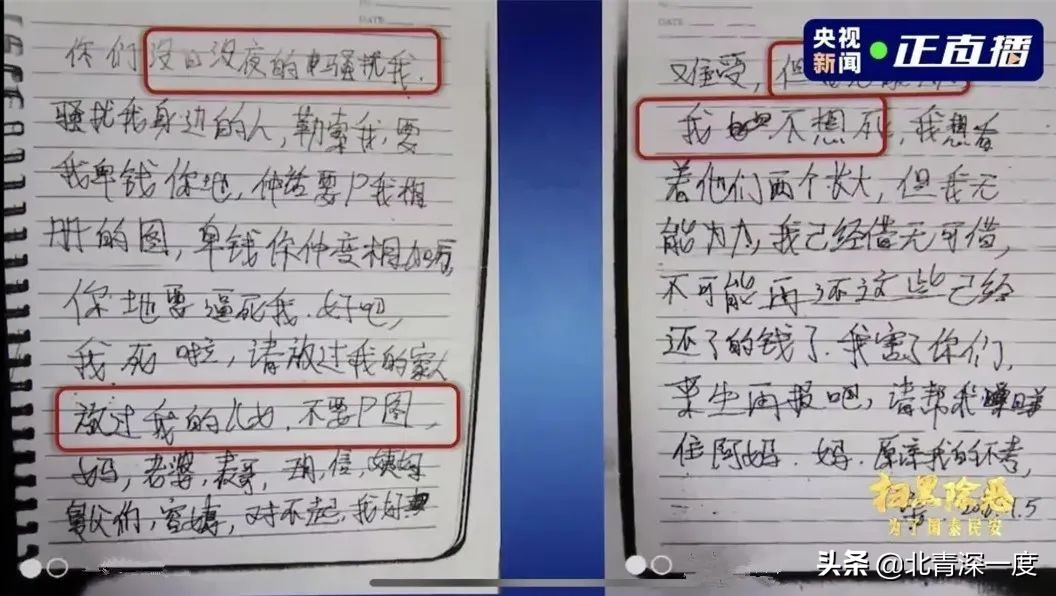 DATE
你们没日没夜的骚扰我.
骚扰我身边的人,勒索我,要
我卑钱你地,仲话要P我相
册的图,卑钱你仲变相加
你地要逼死我.好吧,
我死啦,请放过我的家人
放过我的儿女,不要P图,
妈,老婆,表哥,姨妈
舅父们,对不起,我好
DATE
难受,但
我不想死,我想看
着他们两个长大,但我无
能为力,我已经借无可借,
不可能再还这些已经
还了的钱了.我害了你们,
来生再报吧,请帮我
住阿妈.妈.原谅我的不孝,
1.5
央视新闻
正直播
扫黑除恶
为了国泰民安
头条 @北青深一度